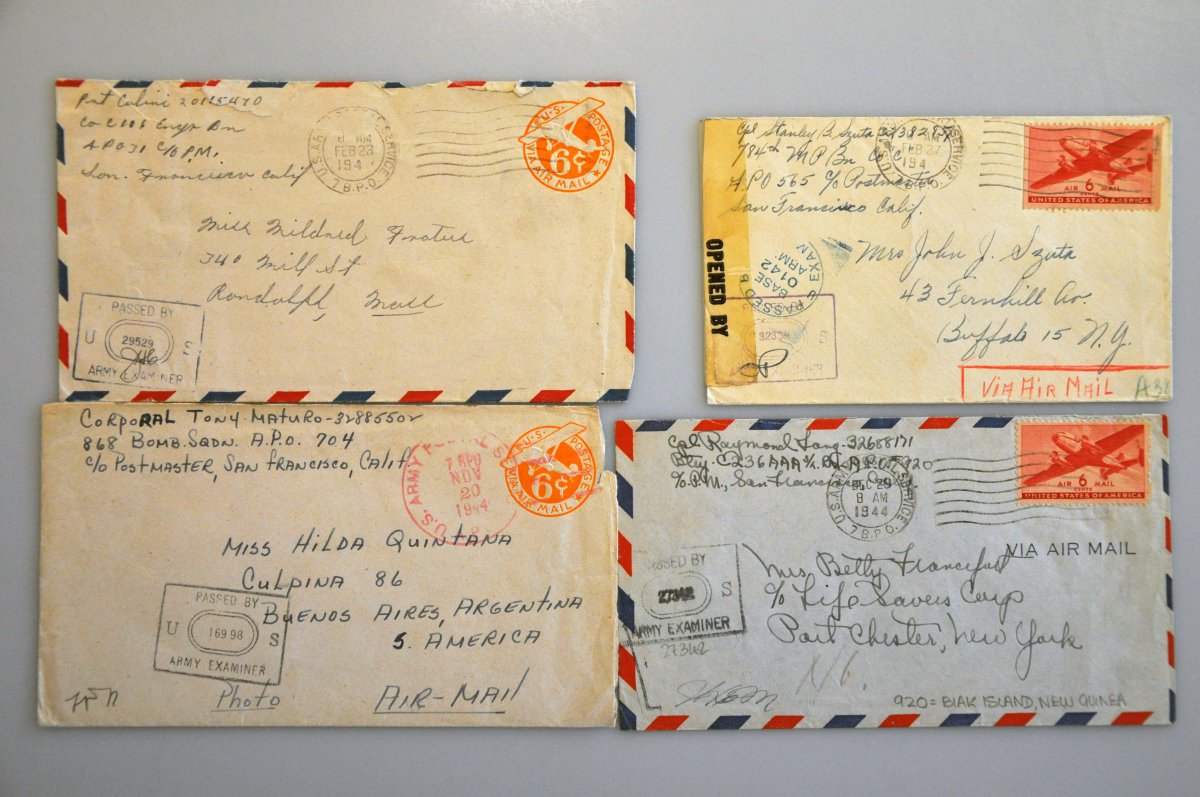 Pvt Colini 20125470
Co C 106 Engr Bn
APO 31 C/O P.M.
San. Francisco Calif
U.S. ARMY SERVICE
8 AM
FEB 23
194
7 B.P.O.
U.S. POSTAGE
6¢
VIA AIR MAIL
Miss Mildred Fratus
340 Mill St
Randolph, Mass
PASSED BY
U 29529 S
ARMY EXAMINER
Cpl Stanley B. Szuta
784th M P Bn Co C
APO 565 C/o Postmaster
San Francisco Calif.
AM
FEB 27
194
SERVICE
AIR 6 MAIL
CENTS
UNITED STATES OF AMERICA
OPENED BY
PASSED B
BASE
0142
ARM
EXAM
S
Mrs John J. Szuta
43 Fernhill Av.
Buffalo 15 N.Y.
VIA AIR MAIL
CORPORAL TONY MATURO-32885502
868 BOMB. SQDN. A.P.O. 704
C/O POSTMASTER, SAN FRANCISCO, CALIF.
U.S. ARMY POSTAL S
7 APO
NOV
20
1944
U.S. POSTAGE
6¢
VIA AIR MAIL
MISS HILDA QUINTANA
CULPINA 86
BUENOS AIRES, ARGENTINA
S. AMERICA
PASSED BY
U 16998 S
ARMY EXAMINER
Photo
AIR-MAIL
Cpl Raymond Lang-32688171
Btry C 236 AAA S/L Bn. A.P.O. 920
C/o P.M., San Francisco, Calif
U.S. ARMY SERVICE
DEC 29
8 AM
1944
7 B.P.O.
AIR 6 MAIL
CENTS
UNITED STATES OF AMERICA
VIA AIR MAIL
PASSED BY
S
ARMY EXAMINER
27342
Miss Betty
C/o Life Savers Corp
Port Chester, New York
920 = BIAK ISLAND, NEW GUINEA